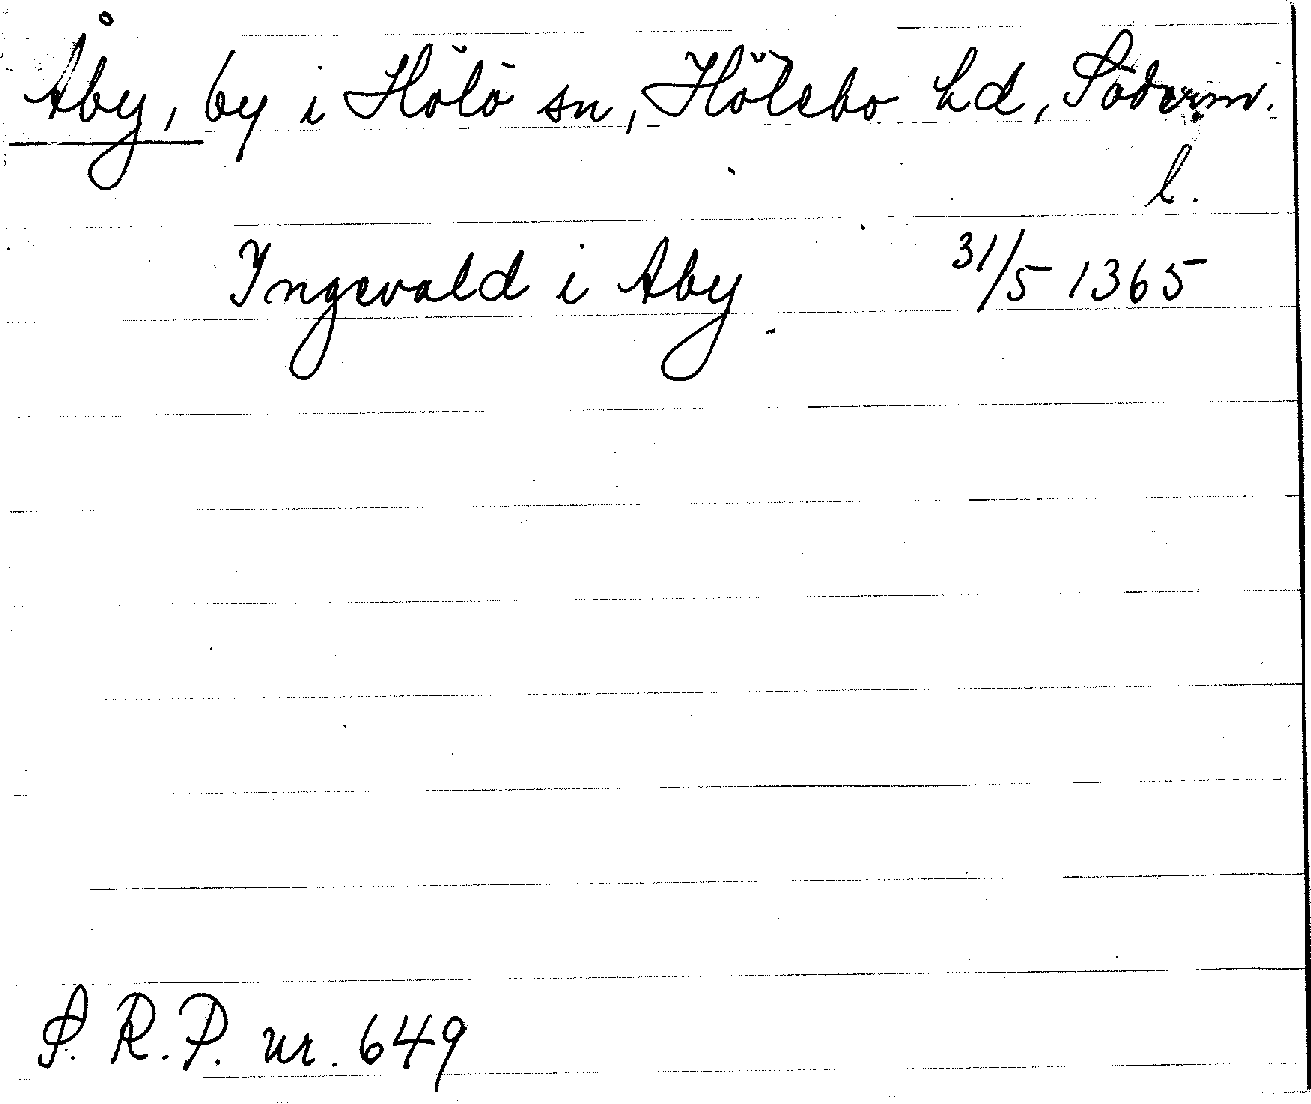 Åby, by i Hölö sn, Hölebo hd, Söderm.
l.
Ingevald i Aby 31/5 1365
S. R. P. nr. 649